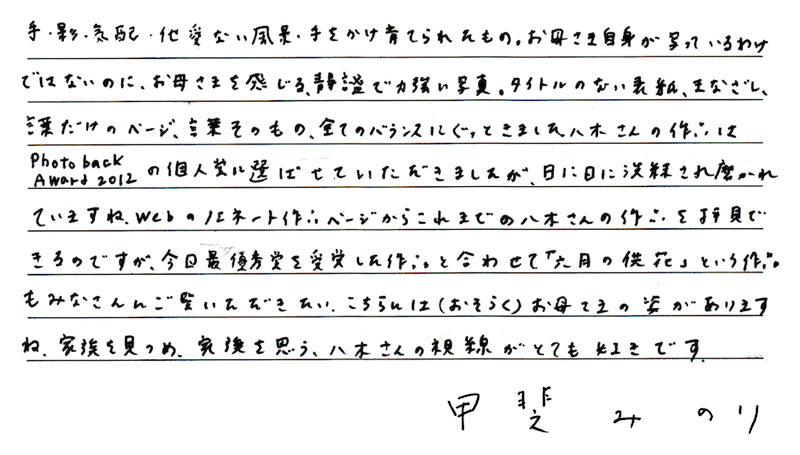 手・影・気配・他愛ない風景・手をかけ育てられたもの。お母さま自身が写っているわけ
ではないのに、お母さまを感じる、静謐で力強い写真。タイトルのない表紙、まなざし、
言葉だけのページ、言葉そのもの、全てのバランスにぐっときました。八木さんの作品は
Photoback Award 2012 の個人賞に選ばせていただきましたが、日に日に洗練され磨かれ
ていますね。Webのノミネート作品ページからこれまでの八木さんの作品を拝見で
きるのですが、今回最優秀賞を受賞した作品と合わせて「六月の供花」という作品
もみなさんにご覧いただきたい。こちらには(おそらく)お母さまの姿があります
ね。家族を見つめ、家族を思う、八木さんの視線がとても好きです。
甲斐みのり